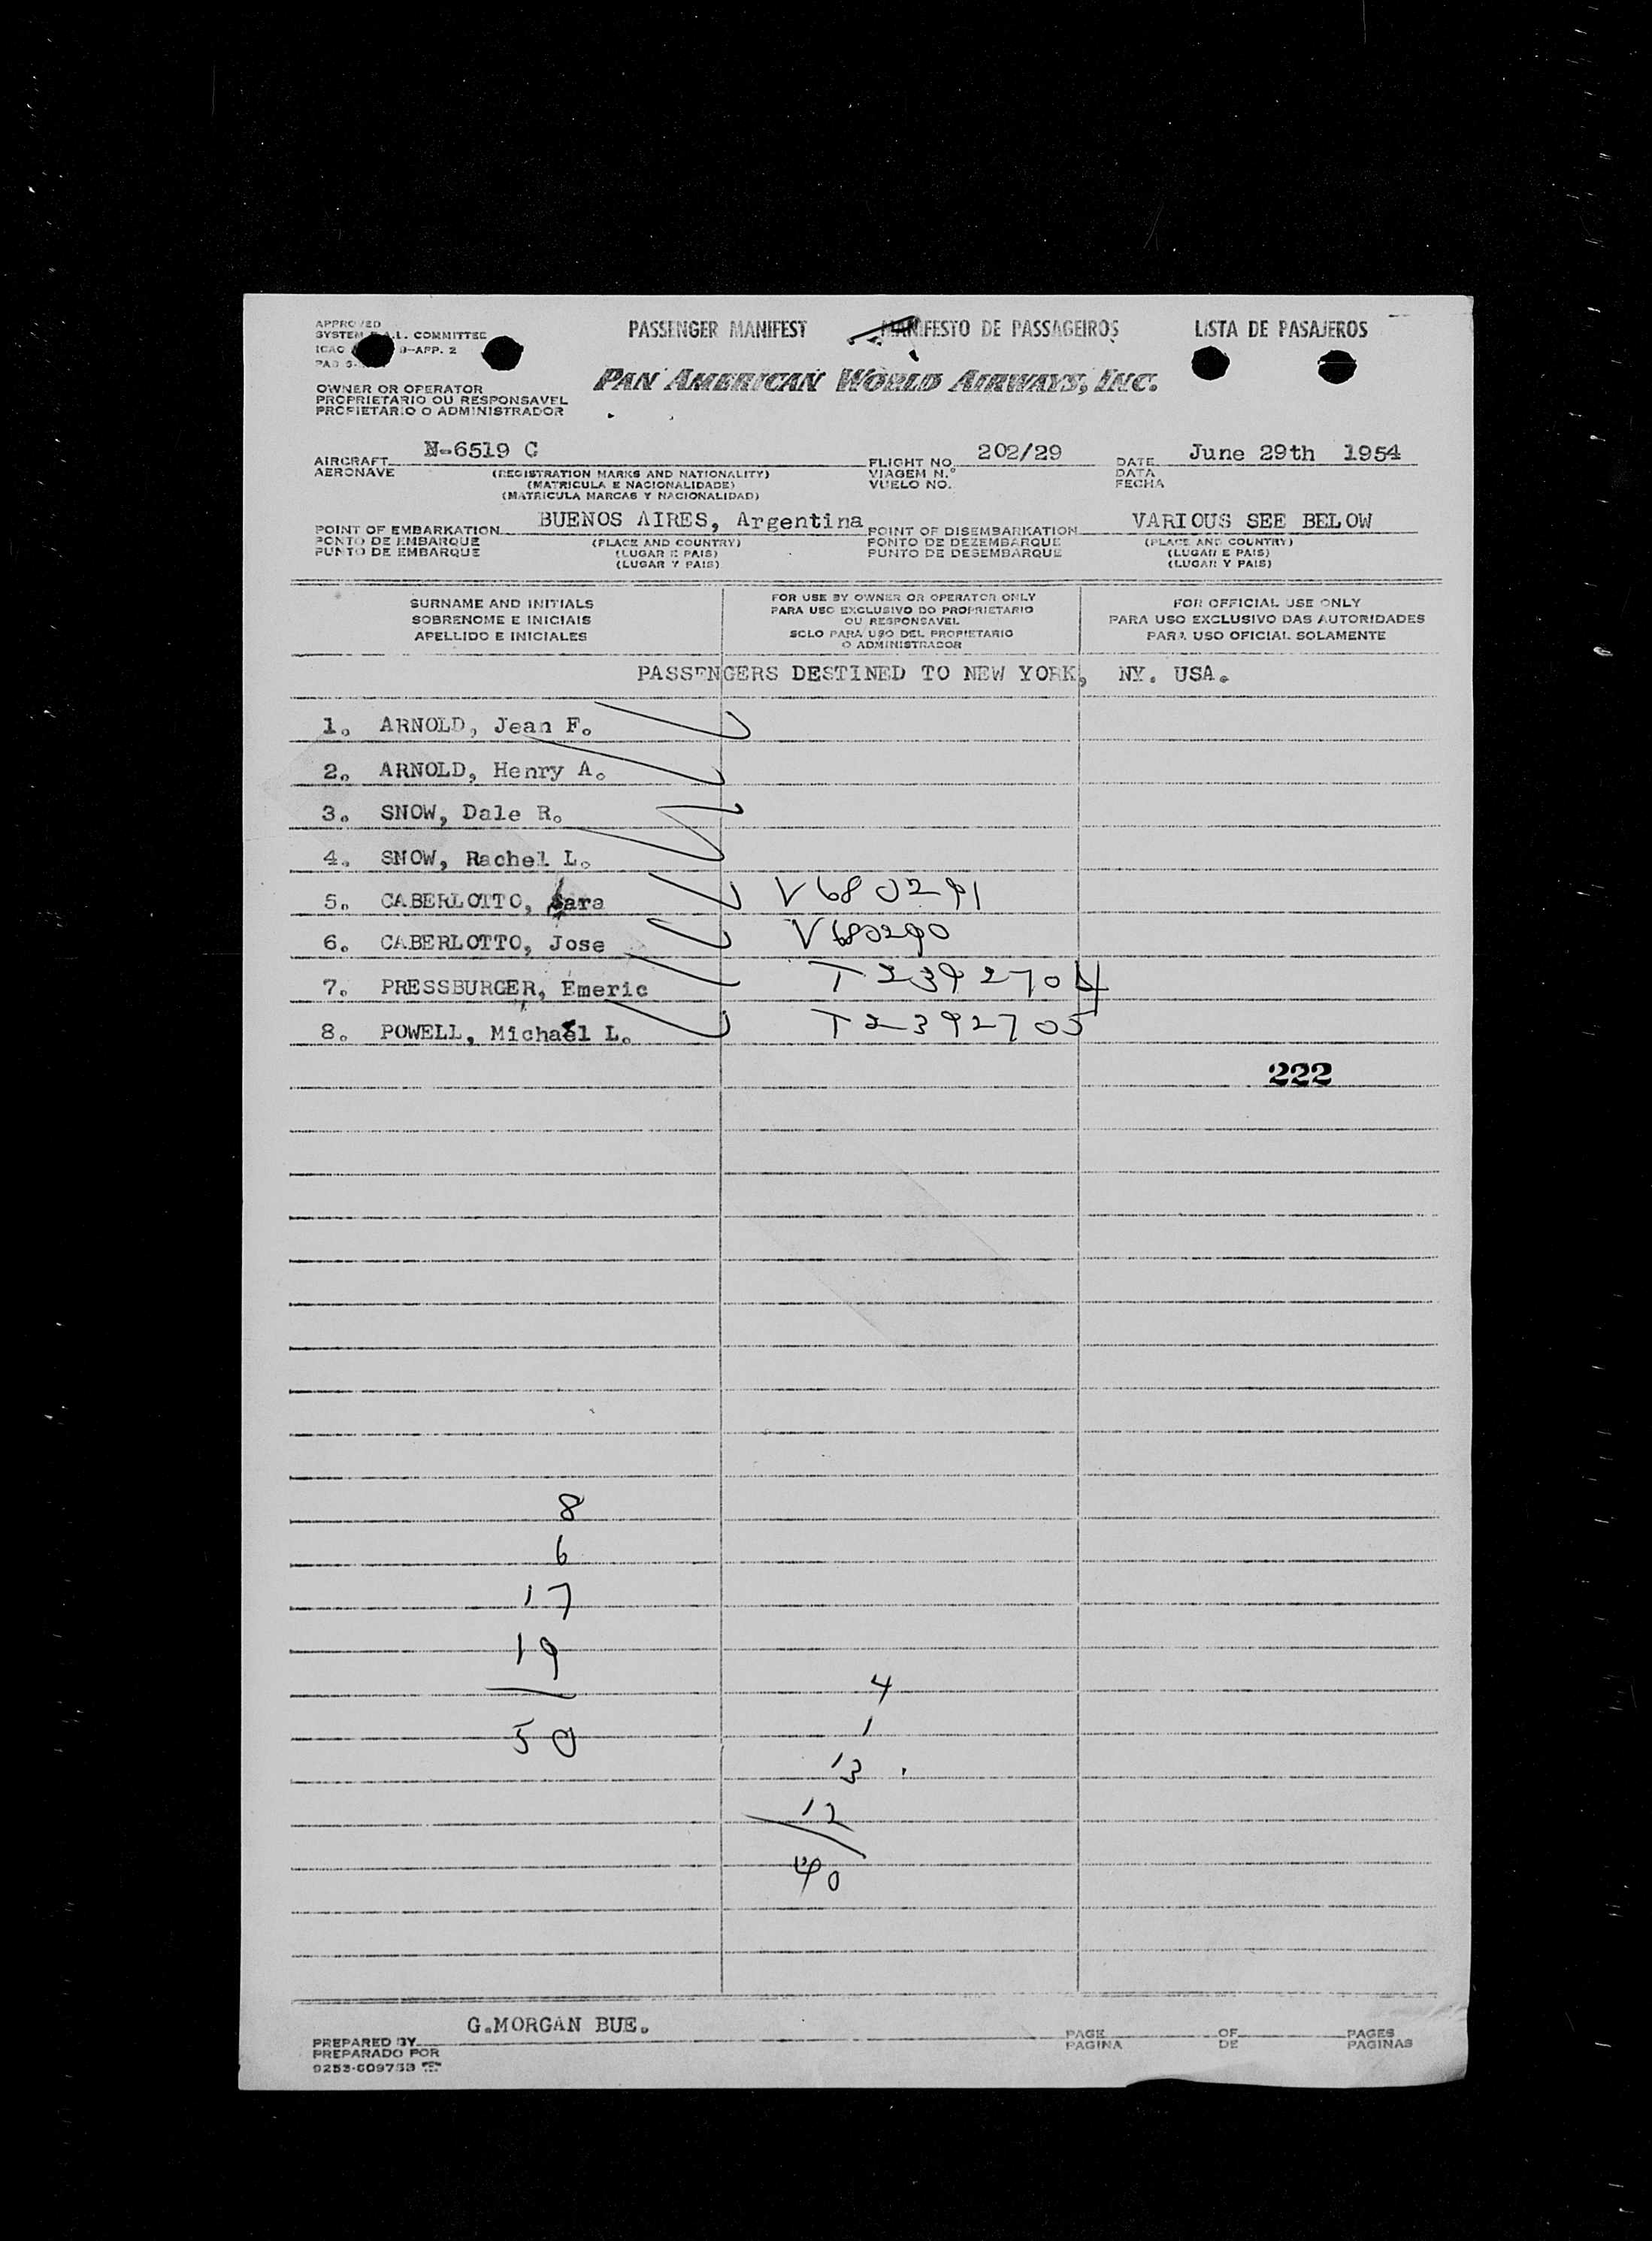 APPROVED
SYSTEM F.A.L. COMMITTEE
ICAO 9-APP. 2
PASSENGER MANIFEST MANIFESTO DE PASSAGEIROS LISTA DE PASAJEROS
PAN AMERICAN WORLD AIRWAYS, INC.
OWNER OR OPERATOR
PROPRIETARIO OU RESPONSAVEL
PROPIETARIO O ADMINISTRADOR
AIRCRAFT N-6519 C FLIGHT NO. 202/29 DATE June 29th 1954
AERONAVE (REGISTRATION MARKS AND NATIONALITY) VIAGEM N.° DATA
(MATRICULA E NACIONALIDADE) VUELO NO. FECHA
(MATRICULA MARCAS Y NACIONALIDAD)
POINT OF EMBARKATION BUENOS AIRES, Argentina POINT OF DISEMBARKATION VARIOUS SEE BELOW
PONTO DE EMBARQUE (PLACE AND COUNTRY) PONTO DE DEZEMBARQUE (PLACE AND COUNTRY)
PUNTO DE EMBARQUE (LUGAR E PAIS) PUNTO DE DESEMBARQUE (LUGAR E PAIS)
(LUGAR Y PAIS) (LUGAR Y PAIS)
SURNAME AND INITIALS
SOBRENOME E INICIAIS
APELLIDO E INICIALES
FOR USE BY OWNER OR OPERATOR ONLY
PARA USO EXCLUSIVO DO PROPRIETARIO
OU RESPONSAVEL
SOLO PARA USO DEL PROPIETARIO
O ADMINISTRADOR
FOR OFFICIAL USE ONLY
PARA USO EXCLUSIVO DAS AUTORIDADES
PARA USO OFICIAL SOLAMENTE
PASSENGERS DESTINED TO NEW YORK, NY. USA.
1. ARNOLD, Jean F.
2. ARNOLD, Henry A.
3. SNOW, Dale R.
4. SNOW, Rachel L.
5. CABERLOTTO, Sara V680291
6. CABERLOTTO, Jose V680290
7. PRESSBURGER, Emeric T2392704
8. POWELL, Michael L. T2392705
222
8
6
17
19
50
4
1
13
12
40
G.MORGAN BUE.
PREPARED BY PAGE OF PAGES
PREPARADO POR PAGINA DE PAGINAS